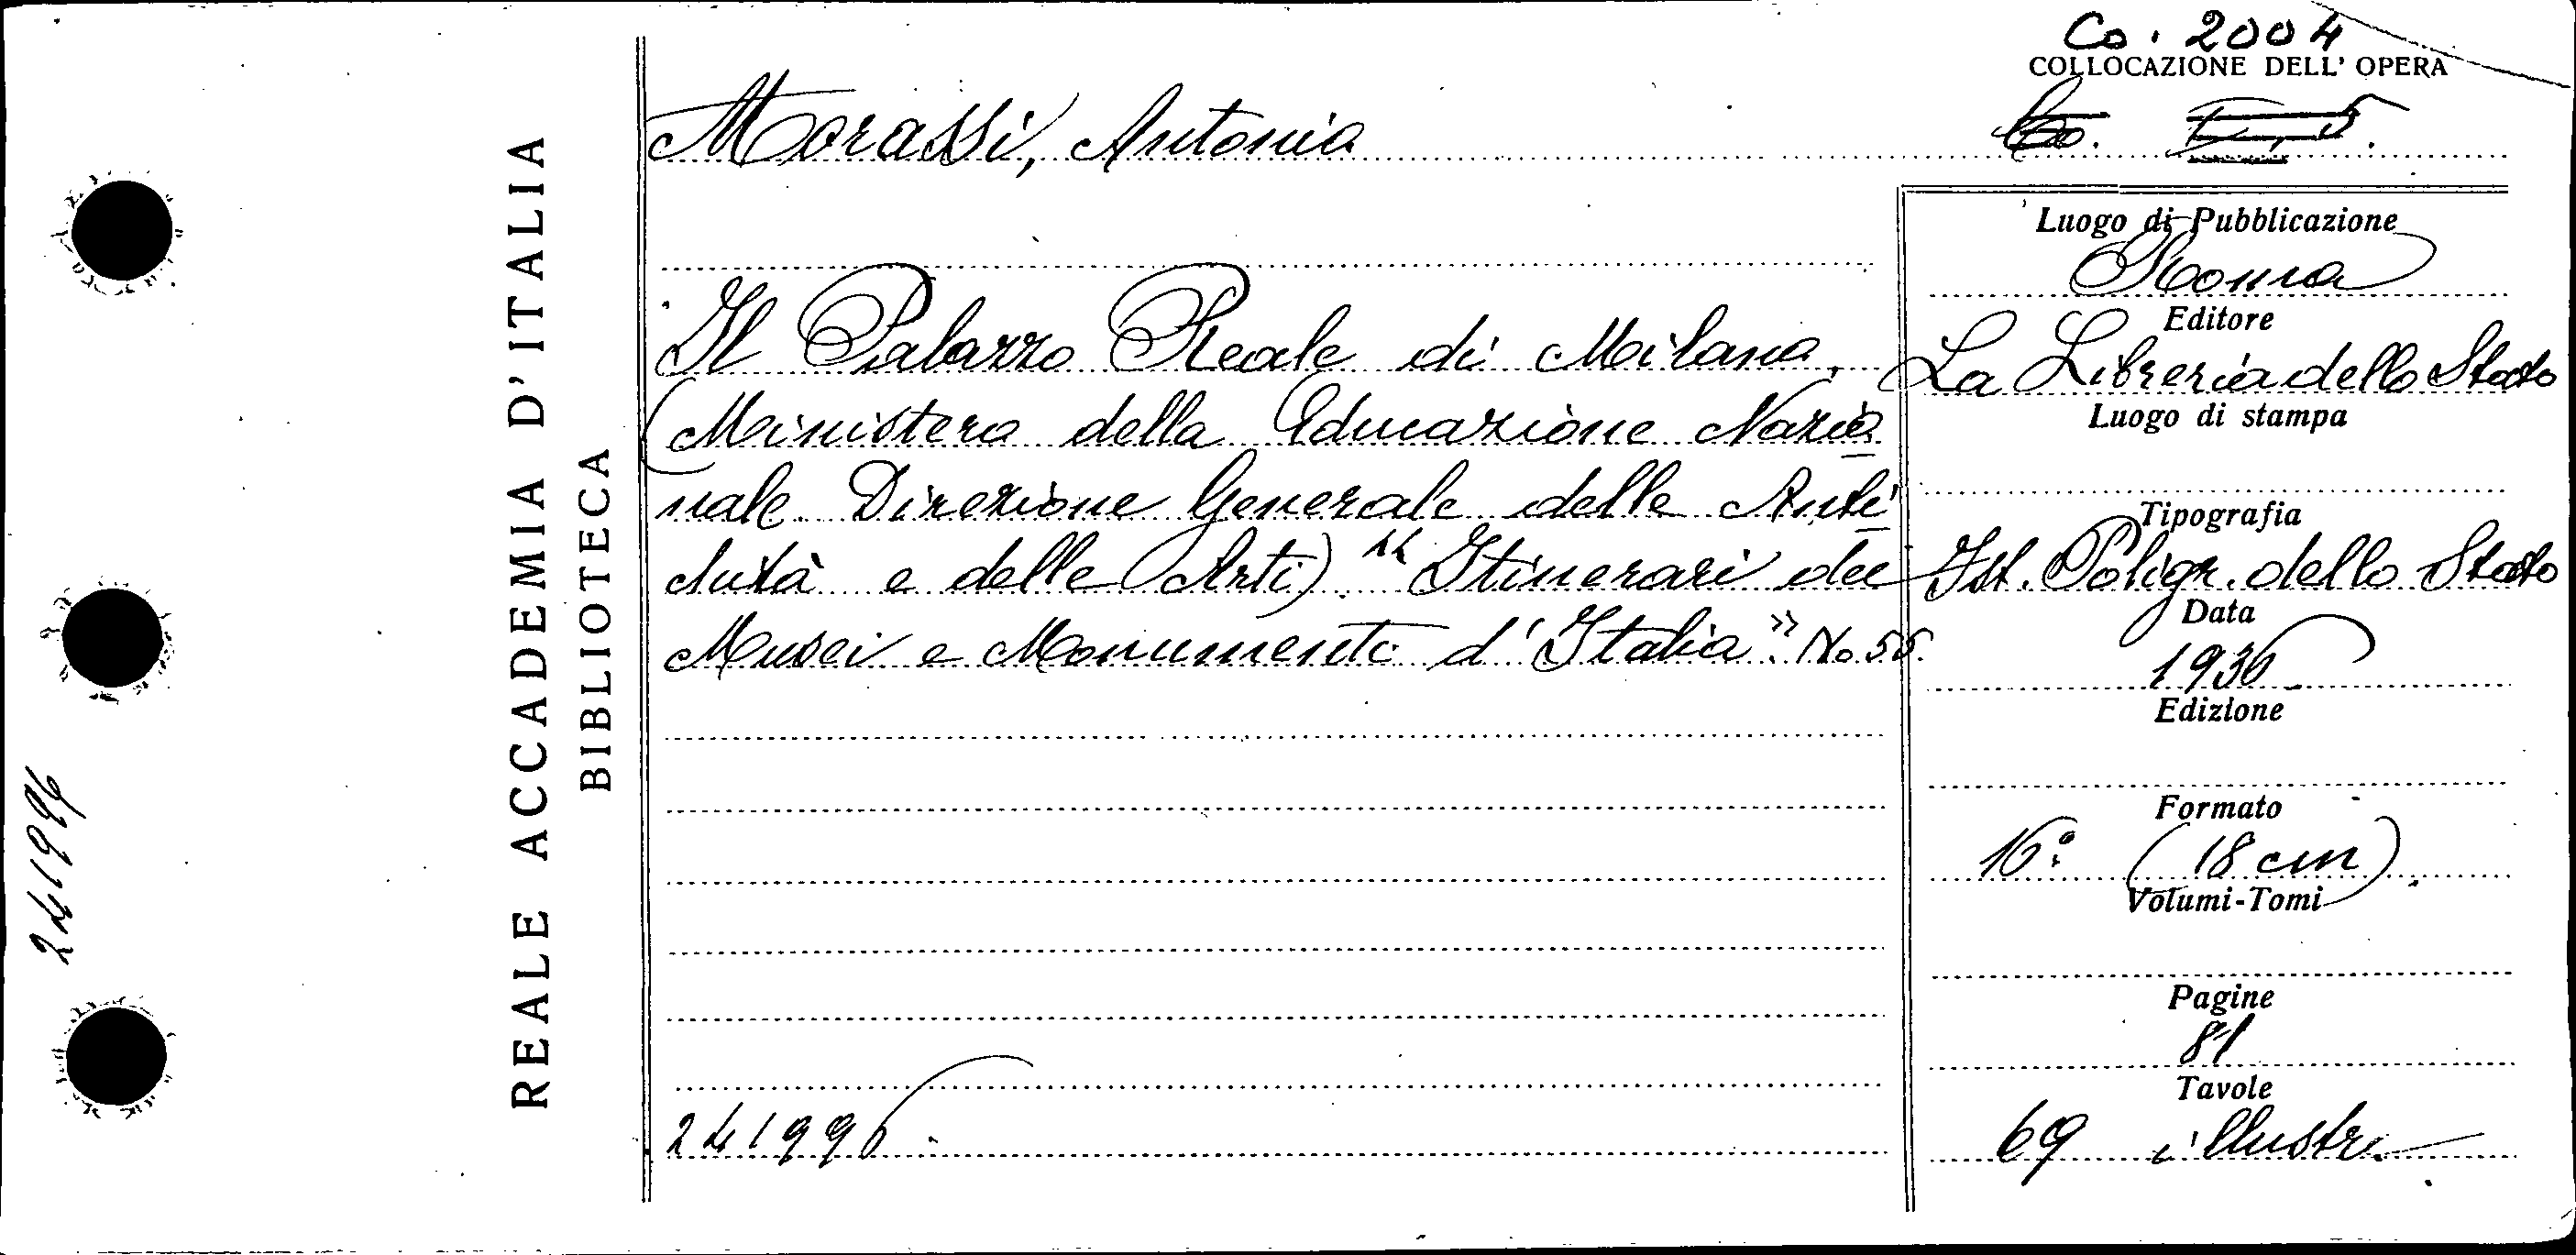 Co. 2004
COLLOCAZIONE DELL' OPERA
Morassi, Antonio
Co.
REALE ACCADEMIA D'ITALIA
BIBLIOTECA
Il Palazzo Reale di Milano.
(Ministero della Educazione Nazio
nale. Direzione Generale delle Anti
chità e delle Arti). "Itinerari dei
Musei e Monumenti d'Italia". No.
241996.
Luogo di Pubblicazione
Roma
Editore
La Libreria dello Stato
Luogo di stampa
Tipografia
Ist. Poligr. dello Stato
Data
1936
Edizione
Formato
16° (18 cm).
Volumi-Tomi
Pagine
81
Tavole
69 illustr.
241996